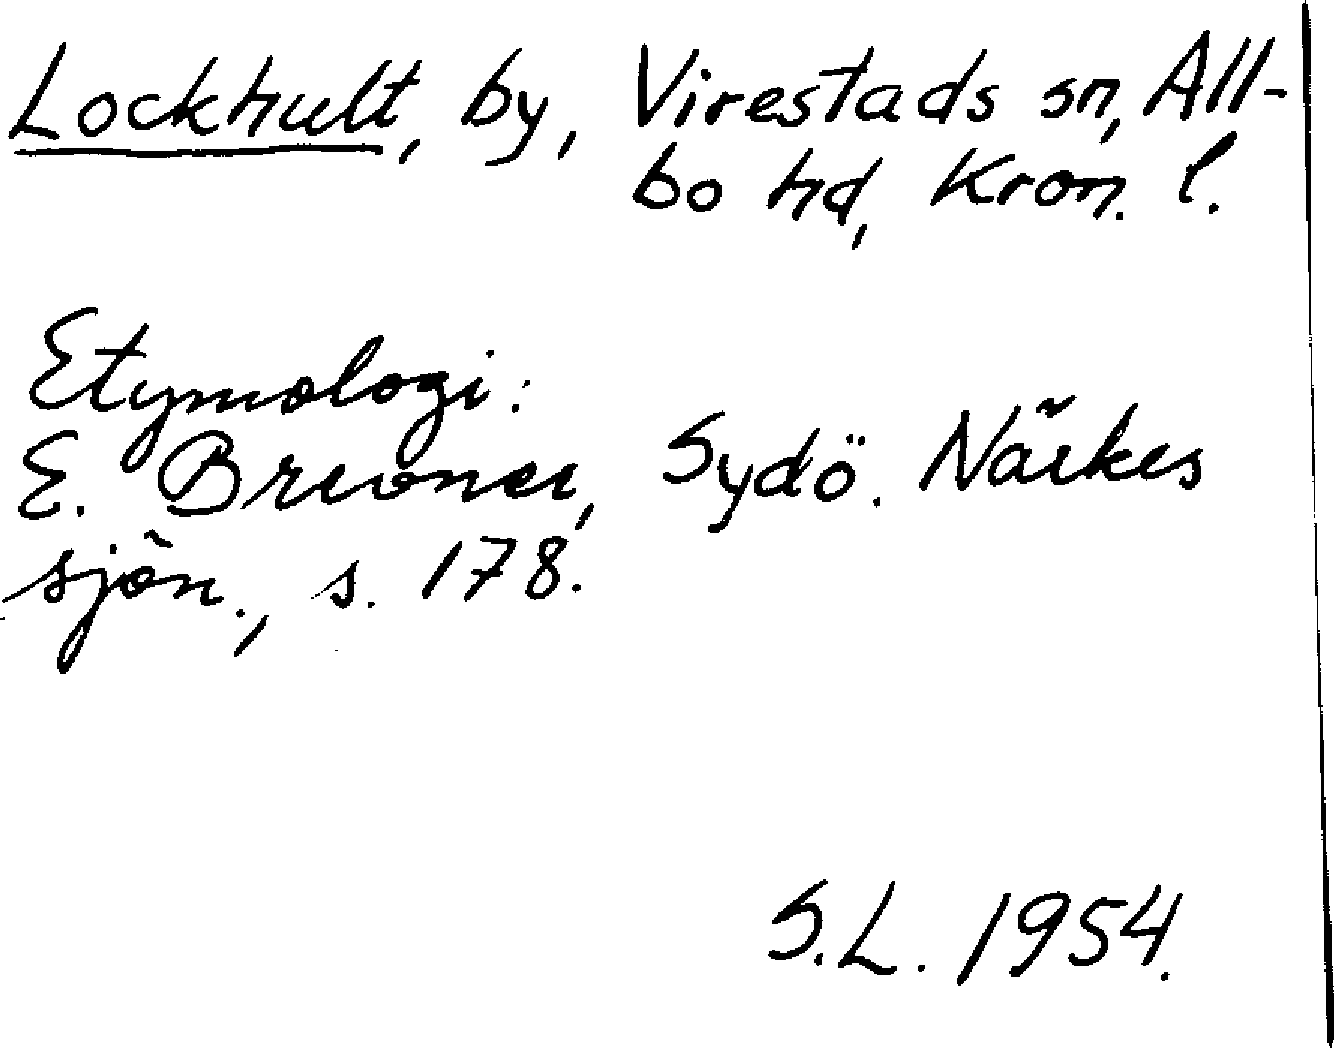 Lockhult, by, Virestads sn, All-
bo hd, Kron. l.
Etymologi:
E. Brevner, Sydö. Närkes
sjön., s. 178.
S.L. 1954.